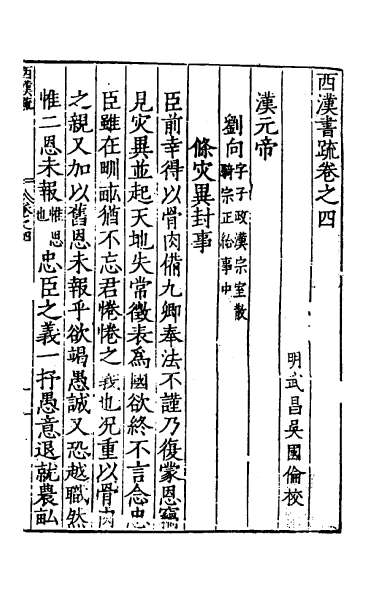 西漢書疏卷之四
明武昌吳國倫校
漢元帝
劉向字子政漢宗室散騎宗正給事中
條灾異封事
臣前幸得以骨肉備九卿奉法不謹乃復蒙恩竊
見灾異並起天地失常徵表為國欲終不言念忠
臣雖在甽畝猶不忘君惓惓之義也況重以骨肉
之親又加以舊恩未報乎欲竭愚誠又恐越職然
惟二恩未報惟思也忠臣之義一抒愚意退就農畝
西漢疏
卷之四